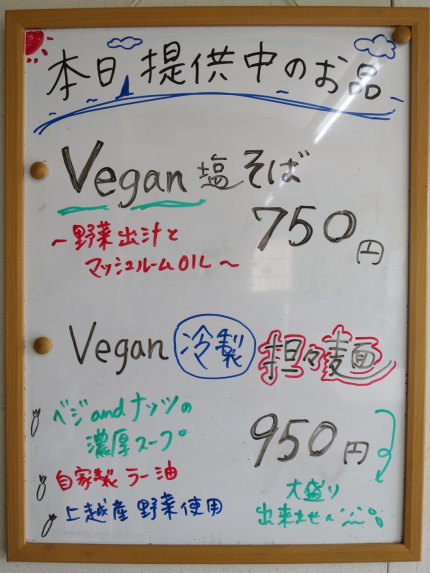 本日提供中のお品
Vegan 塩そば
750円
~野菜出汁と
マッシュルームOIL~
Vegan 冷製 担々麺
ベジandナッツの
濃厚スープ
950円
自家製 ラー油
大盛り
上越産 野菜使用
出来ません